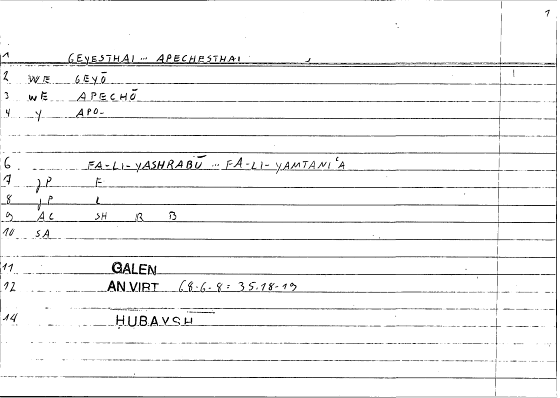 1
1 GEYESTHAI ... APECHESTHAI
2 WE GEYŌ
3 WE APECHŌ
4 Y APO-
6 FA-LI-YASHRABŪ ... FA-LI-YAMTANI'A
7 JP F
8 JP L
9 AC SH R B
10 SA
11 GALEN
12 AN VIRT 68.6-8 = 35.18-19
14 HUBAYSH